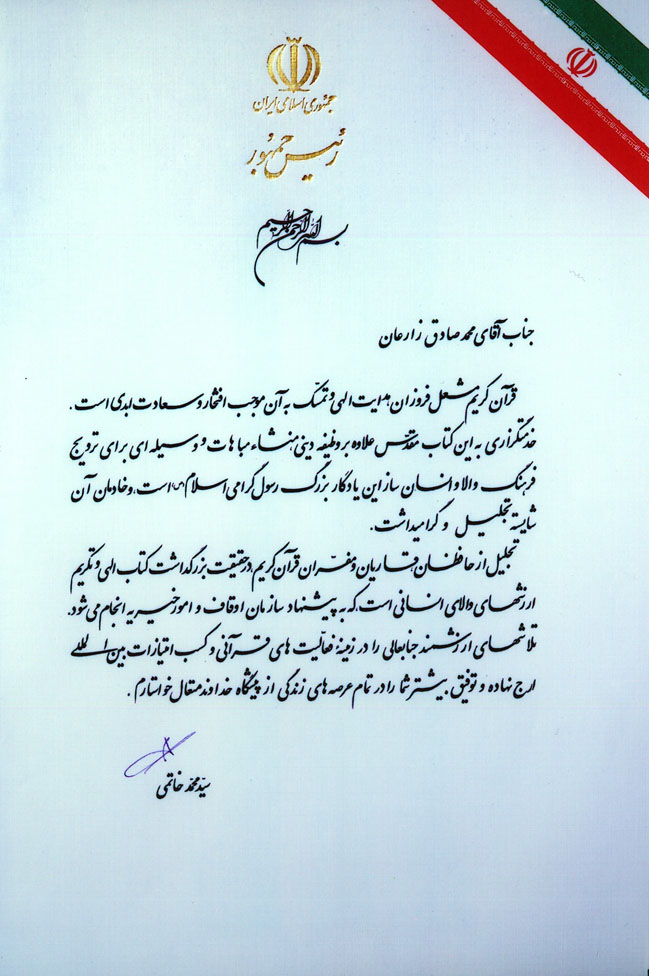 جمهوری اسلامی ایران
رئیس جمهور
بسم الله الرحمن الرحیم
جناب آقای محمد صادق زارعان
قرآن کریم مشعل فروزان هدایت الهی و تمسّک به آن موجب افتخار و سعادت ابدی است.
خدمتگزاری به این کتاب مقدّس علاوه بر وظیفه دینی، منشاء مباهات و وسیله ای برای ترویج
فرهنگ والا و انسان ساز این یادگار بزرگ رسول گرامی اسلام (ص) است، و خادمان آن
شایسته تجلیل و گرامیداشت.
تجلیل از حافظان، قاریان و مفسّران قرآن کریم، در حقیقت بزرگداشت کتاب الهی و تکریم
ارزشهای والای انسانی است، که به پیشنهاد سازمان اوقاف و امور خیریه انجام می شود.
تلاشهای ارزشمند جنابعالی را در زمینهٔ فعالیت های قرآنی و کسب امتیازات بین المللی
ارج نهاده و توفیق بیشتر شما را در تمام عرصه های زندگی از پیشگاه خداوند متعال خواستارم.
سیّد محمّد خاتمی